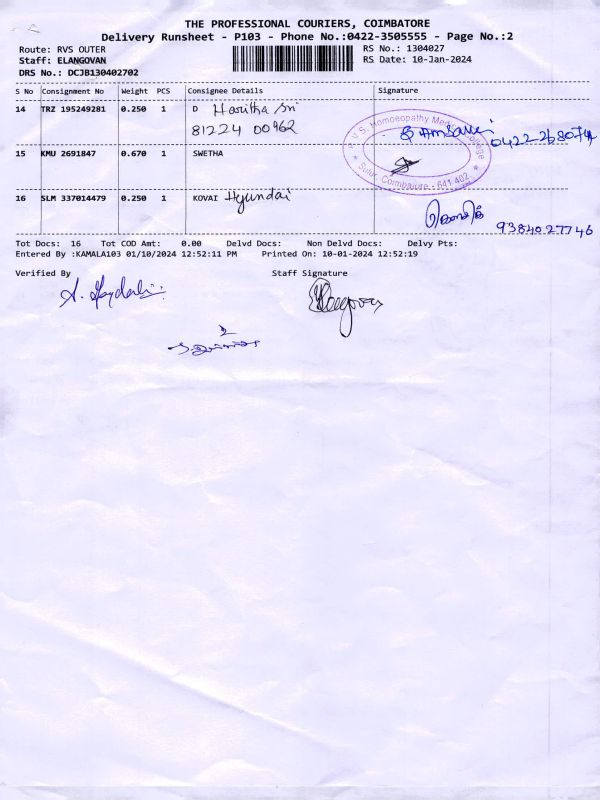 THE PROFESSIONAL COURIERS, COIMBATORE
Delivery Runsheet - P103 - Phone No.:0422-3505555 - Page No.:2
Route: RVS OUTER RS No.: 1304027
Staff: ELANGOVAN RS Date: 10-Jan-2024
DRS No.: DCJB130402702
S No Consignment No Weight PCS Consignee Details Signature
14 TRZ 195249281 0.250 1 D Haritha Sri
81224 00962
R.V.S. Homoeopathy Medical College
★ Sulur, Coimbatore - 641 402 ★
15 KMU 2691847 0.670 1 SWETHA
16 SLM 337014479 0.250 1 KOVAI Hyundai
9384027746
Tot Docs: 16 Tot COD Amt: 0.00 Delvd Docs: Non Delvd Docs: Delvy Pts:
Entered By :KAMALA103 01/10/2024 12:52:11 PM Printed On: 10-01-2024 12:52:19
Verified By Staff Signature